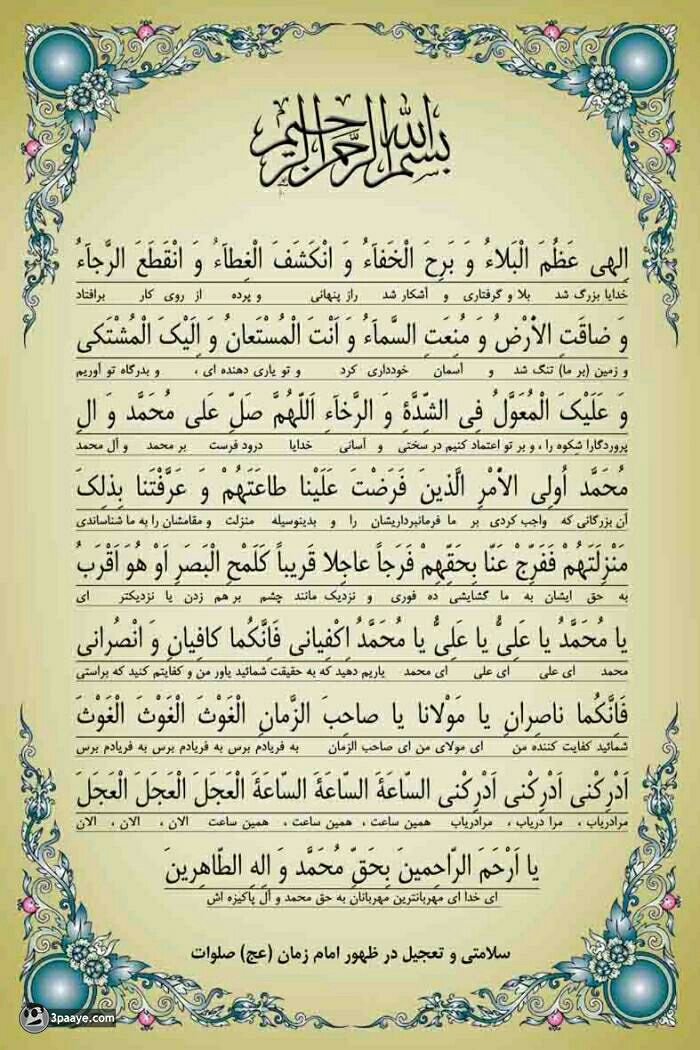 بسم الله الرحمن الرحیم
اِلهی عَظُمَ الْبَلاءُ وَ بَرِحَ الْخَفاَّءُ وَ انْکَشَفَ الْغِطاَّءُ وَ انْقَطَعَ الرَّجاَّءُ
خدایا بزرگ شد بلا و گرفتاری و آشکار شد راز پنهانی و پرده از روی کار برافتاد
وَ ضاقَتِ الاَْرْضُ وَ مُنِعَتِ السَّماَّءُ وَ اَنْتَ الْمُسْتَعانُ وَ اِلَیْکَ الْمُشْتَکی
و زمین (بر ما) تنگ شد و آسمان خودداری کرد و تو یاری دهنده ای ، و بدرگاه تو آوریم
وَ عَلَیْکَ الْمُعَوَّلُ فِی الشِّدَّةِ وَ الرَّخاَّءِ اَللّهُمَّ صَلِّ عَلی مُحَمَّد وَ الِ
پروردگارا شکوه را ، و بر تو اعتماد کنیم در سختی و آسانی خدایا درود فرست بر محمد و آل محمد
مُحَمَّد اُولِی الاَْمْرِ الَّذینَ فَرَضْتَ عَلَیْنا طاعَتَهُمْ وَ عَرَّفْتَنا بِذلِکَ
آن بزرگانی که واجب کردی بر ما فرمانبرداریشان را و بدینوسیله منزلت و مقامشان را به ما شناساندی
مَنْزِلَتَهُمْ فَفَرِّجْ عَنّا بِحَقِّهِمْ فَرَجاً عاجِلا قَریباً کَلَمْحِ الْبَصَرِ اَوْ هُوَ اَقْرَبُ
به حق ایشان به ما گشایشی ده فوری و نزدیک مانند چشم بر هم زدن یا نزدیکتر ای
یا مُحَمَّدُ یا عَلِیُّ یا عَلِیُّ یا مُحَمَّدُ اِکْفِیانی فَاِنَّکُما کافِیانِ وَ انْصُرانی
محمد ای علی ای علی ای محمد یاریم دهید که به حقیقت شمائید یاور من و کفایتم کنید که براستی
فَاِنَّکُما ناصِرانِ یا مَوْلانا یا صاحِبَ الزَّمانِ الْغَوْثَ الْغَوْثَ الْغَوْثَ
شمائید کفایت کننده من ای مولای من ای صاحب الزمان به فریادم برس به فریادم برس به فریادم برس
اَدْرِکْنی اَدْرِکْنی اَدْرِکْنی السّاعَةَ السّاعَةَ السّاعَةَ الْعَجَلَ الْعَجَلَ الْعَجَلَ
مرادریاب ، مرا دریاب ، مرادریاب همین ساعت ، همین ساعت ، همین ساعت الان ، الان ، الان
یا اَرْحَمَ الرّاحِمینَ بِحَقِّ مُحَمَّد وَ الِهِ الطّاهِرینَ
ای خدا ای مهربانترین مهربانان به حق محمد و آل پاکیزه اش
سلامتی و تعجیل در ظهور امام زمان (عج) صلوات
3paaye.com